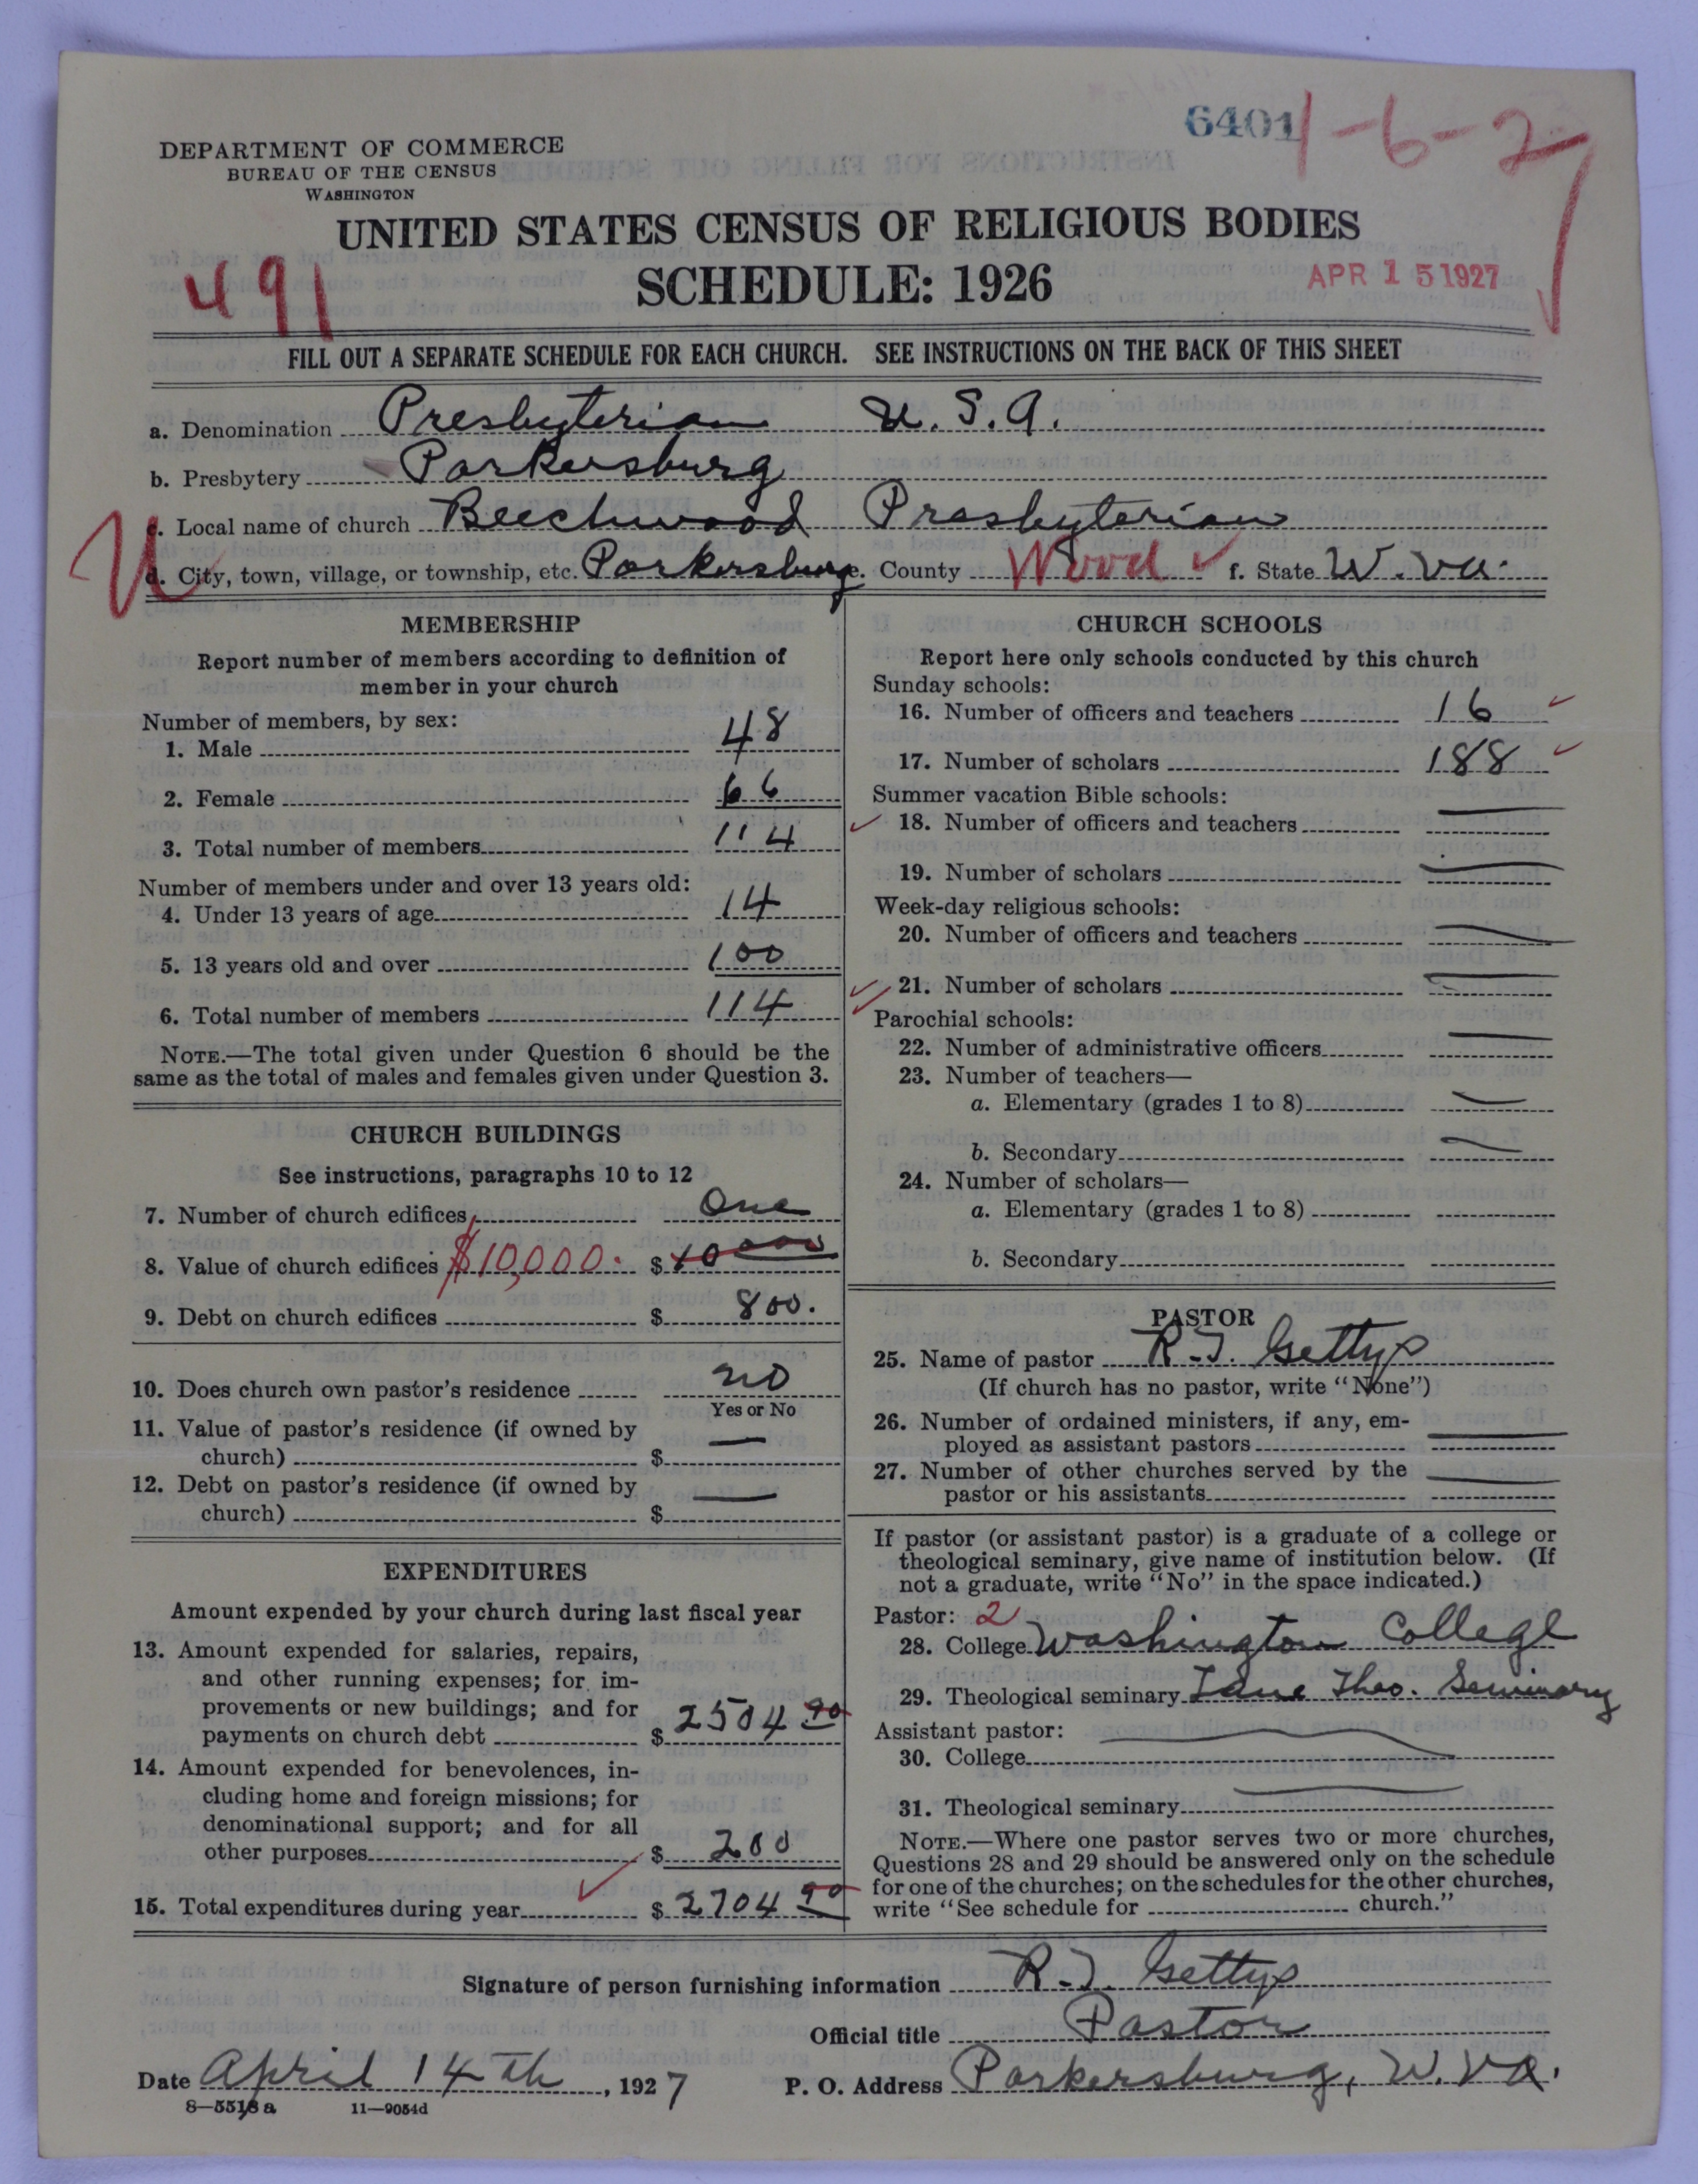 6401
1-6-2
DEPARTMENT OF COMMERCE
BUREAU OF THE CENSUS
WASHINGTON
UNITED STATES CENSUS OF RELIGIOUS BODIES
491
SCHEDULE: 1926
APR 15 1927
FILL OUT A SEPARATE SCHEDULE FOR EACH CHURCH. SEE INSTRUCTIONS ON THE BACK OF THIS SHEET
a. Denomination Presbyterian U.S.A.
b. Presbytery Parkersburg
c. Local name of church Beechwood Presbyterian
d. City, town, village, or township, etc. Parkersburg e. County Wood f. State W. Va.
MEMBERSHIP
Report number of members according to definition of
member in your church
Number of members, by sex:
1. Male 48
2. Female 66
3. Total number of members 114
Number of members under and over 13 years old:
4. Under 13 years of age 14
5. 13 years old and over 100
6. Total number of members 114
NOTE.—The total given under Question 6 should be the
same as the total of males and females given under Question 3.
CHURCH BUILDINGS
See instructions, paragraphs 10 to 12
7. Number of church edifices One
8. Value of church edifices $10,000. $ 10000
9. Debt on church edifices $ 800.
10. Does church own pastor's residence no
Yes or No
11. Value of pastor's residence (if owned by
church) $ —
12. Debt on pastor's residence (if owned by
church) $ —
EXPENDITURES
Amount expended by your church during last fiscal year
13. Amount expended for salaries, repairs,
and other running expenses; for im-
provements or new buildings; and for
payments on church debt $ 2504 90
14. Amount expended for benevolences, in-
cluding home and foreign missions; for
denominational support; and for all
other purposes $ 200
15. Total expenditures during year $ 2704 90
CHURCH SCHOOLS
Report here only schools conducted by this church
Sunday schools:
16. Number of officers and teachers 16
17. Number of scholars 188
Summer vacation Bible schools:
18. Number of officers and teachers —
19. Number of scholars —
Week-day religious schools:
20. Number of officers and teachers —
21. Number of scholars —
Parochial schools:
22. Number of administrative officers —
23. Number of teachers—
a. Elementary (grades 1 to 8) —
b. Secondary —
24. Number of scholars—
a. Elementary (grades 1 to 8)
b. Secondary
PASTOR
25. Name of pastor R. J. Gettys
(If church has no pastor, write "None")
26. Number of ordained ministers, if any, em-
ployed as assistant pastors —
27. Number of other churches served by the
pastor or his assistants —
If pastor (or assistant pastor) is a graduate of a college or
theological seminary, give name of institution below. (If
not a graduate, write "No" in the space indicated.)
Pastor: 2
28. College Washington College
29. Theological seminary Lane Theo. Seminary
Assistant pastor:
30. College —
31. Theological seminary —
NOTE.—Where one pastor serves two or more churches,
Questions 28 and 29 should be answered only on the schedule
for one of the churches; on the schedules for the other churches,
write "See schedule for church."
Signature of person furnishing information R. J. Gettys
Official title Pastor
Date April 14th, 1927 P. O. Address Parkersburg, W. Va.
8—5518 a 11—9054d